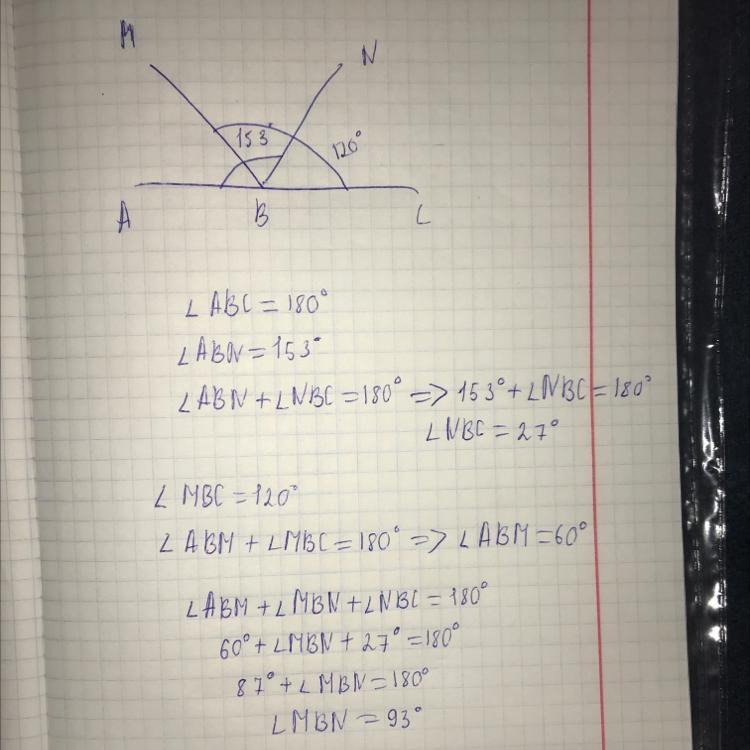 M N
153°
120°
A B C
∠ABC = 180°
∠ABN = 153°
∠ABN + ∠NBC = 180° => 153° + ∠NBC = 180°
∠NBC = 27°
∠MBC = 120°
∠ABM + ∠MBC = 180° => ∠ABM = 60°
∠ABM + ∠MBN + ∠NBC = 180°
60° + ∠MBN + 27° = 180°
87° + ∠MBN = 180°
∠MBN = 93°